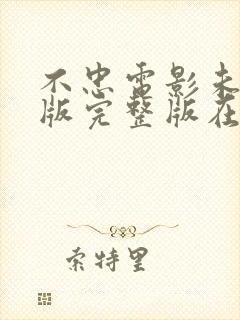 不忠电影未
版完整版在
索特里